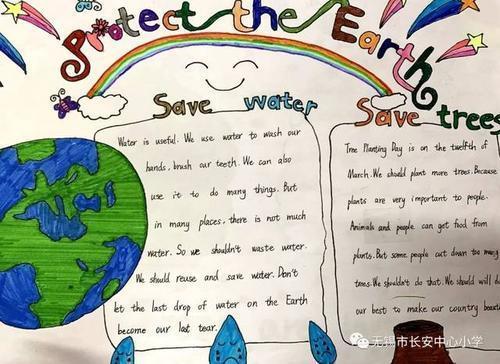 Protect the Earth
Save water
Water is useful. We use water to wash our
hands, brush our teeth. We can also
use it to do many things. But
in many places, there is not much
water. So we shouldn't waste water.
We should reuse and save water. Don't
let the last drop of water on the Earth
become our last tear.
Save trees
Tree Planting Day is on the twelfth of
March. We should plant more trees. Because
plants are very important to people.
Animals and people can get food from
plants. But some people cut down too many
trees. We shouldn't do that. We should will do
our best to make our country
无锡市长安中心小学